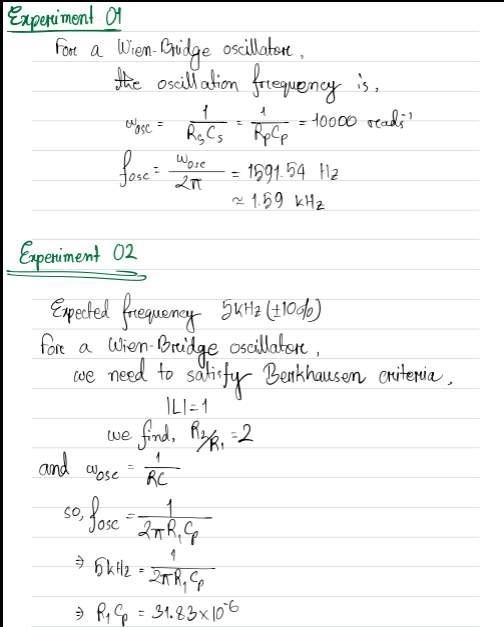 Experiment 01
For a Wien-Bridge oscillator,
the oscillation frequency is,
ω_osc = 1/(R_S C_S) = 1/(R_P C_P) = 10000 rads⁻¹
f_osc = ω_osc/2π = 1591.54 Hz
≃ 1.59 kHz
Experiment 02
Expected frequency 5kHz (±10%)
For a Wien-Bridge oscillator,
we need to satisfy Berkhausen criteria,
|L|=1
we find, R₂/R₁ = 2
and ω_osc = 1/RC
so, f_osc = 1/(2πR₁C_P)
⇒ 5kHz = 1/(2πR₁C_P)
⇒ R₁C_P = 31.83×10⁻⁶